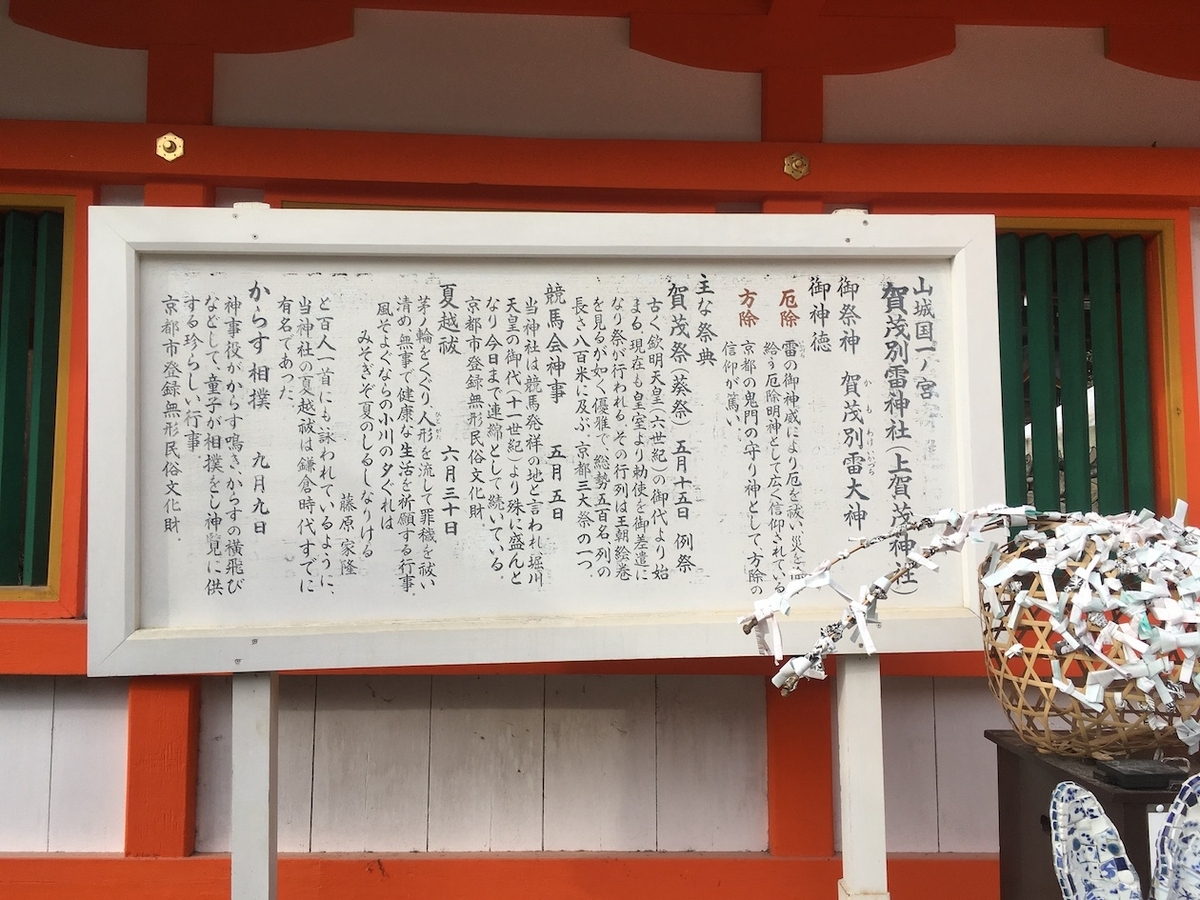 山城国一ノ宮
賀茂別雷神社(上賀茂神社)
御祭神 賀茂別雷大神
か も わけ いかづち
御神徳
厄除 雷の御神威により厄を祓い、災を
給う厄除明神として広く信仰されている
方除 京都の鬼門の守り神として、方除の
信仰が篤い。
主な祭典
賀茂祭(葵祭) 五月十五日 例祭
古く、欽明天皇(六世紀)の御代より始
まる。現在も皇室より勅使を御差遣に
なり祭が行われる。その行列は王朝絵巻
を見るが如く、優雅で、総勢五百名、列の
長さ八百米に及ぶ。京都三大祭の一つ。
競馬会神事 五月五日
当神社は競馬発祥の地と言われ、堀川
天皇の御代(十一世紀)より殊に盛んと
なり今日まで連綿として続いている。
京都市登録無形民俗文化財
夏越祓 六月三十日
茅の輪をくぐり、人形を流して罪穢を祓い
ひとがた
清め、無事で健康な生活を祈願する行事。
風そよぐならの小川の夕ぐれは
みそぎぞ夏のしるしなりける
藤原家隆
と百人一首にも詠われているように、
当神社の夏越祓は鎌倉時代すでに
有名であった
からす相撲 九月九日
神事役がからす鳴き、からすの横飛び
などして、童子が相撲をとし神覧に供
する珍らしい行事
京都市登録無形民俗文化財.